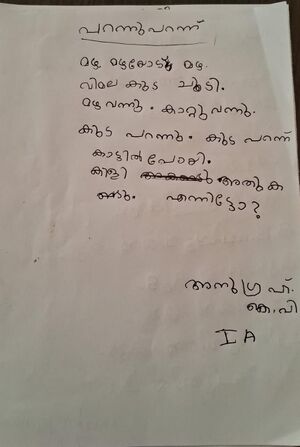 പറന്നുപറന്ന്
മഴ മഴയോടു മഴ.
വിമല കുട ചൂടി.
മഴ വന്നു. കാറ്റു വന്നു.
കുട പറന്നു. കുട പറന്ന്
കാട്ടിൽ പോയി.
കിളി അതു ക
ണ്ടു. എന്നിട്ടോ?
അനുഗ്രഹ്.
കെ.വി
I A